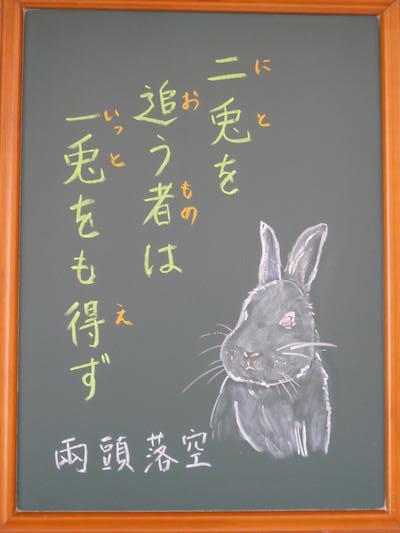 二兎を
にと
追う者は
おもの
一兎をも得ず
いっとえ
兩頭落空